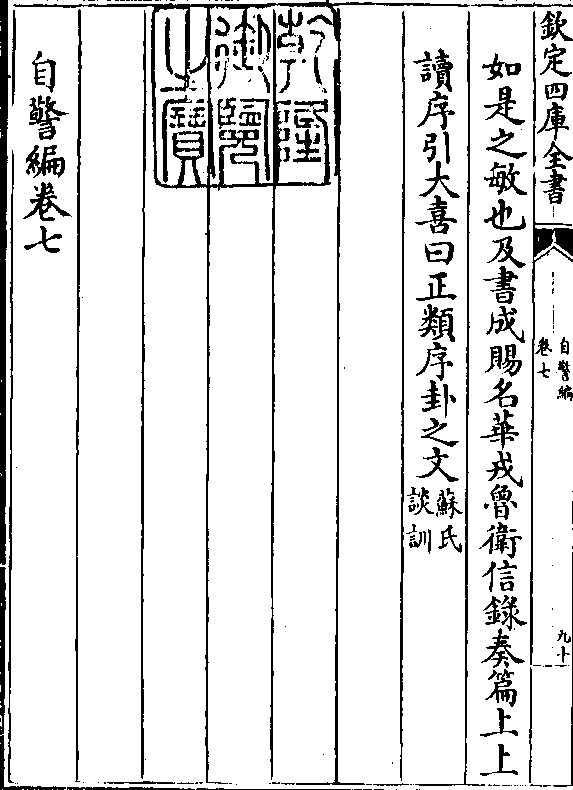 欽定四庫全書
自警編
卷七
九十
如是之敏也及書成賜名華戎魯衛信錄奏篇上上
讀序引大喜曰正類序卦之文蘇氏談訓
乾隆御覽之寶
自警編卷七